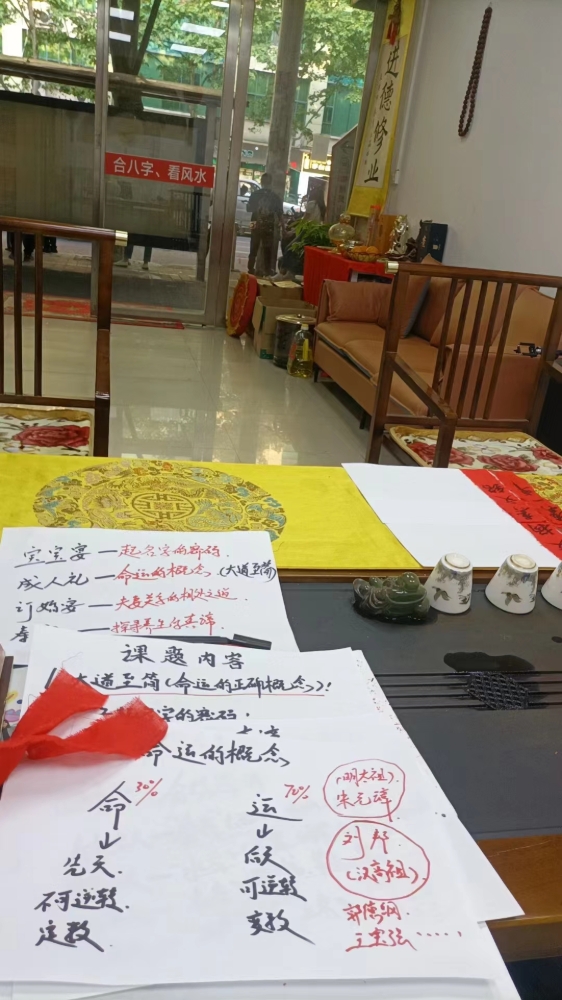 合八字、看风水
进德修业
宝宝宴—起名字的密码.
成人礼—命运的概念(大道至简)
订婚宴—夫妻关系的相处之道
—探寻养生得真谛
课题内容
大道至简(命运的正确概念)!
字的密码.
命运的概念
命 30% 运 70%
先天. 后天
不可逆转. 可逆转
定数. 变数
(明太祖).
朱元璋
刘邦
(汉高祖)
郭德纲
王宝强……